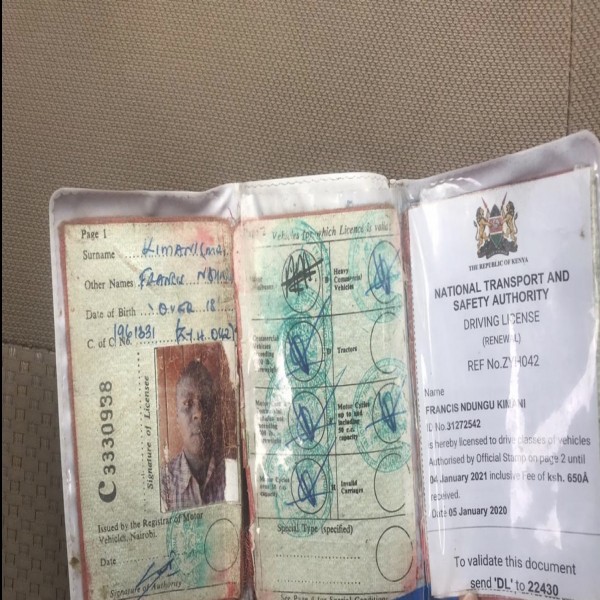 Page 1
Surname KIMANI (MR)
Other Names FRANCIS NDUN
Date of Birth OVER 18
C. of C. No. 1961331 (Z.Y.H. 042)
C 3330938
Signature of Licensee
Issued by the Registrar of Motor
Vehicles, Nairobi.
Date
Signature of Authority
Page 2 Vehicles for which Licence is valid
Heavy
Commercial
Vehicles
Commercial
Vehicles
Tractors
Motor Cycles
up to and
including
50 c.c.
capacity
Motor Cycles
capacity
Invalid
Carriages
Special Type (specified)
See Page 4 for Special Conditions
THE REPUBLIC OF KENYA
NATIONAL TRANSPORT AND
SAFETY AUTHORITY
DRIVING LICENSE
(RENEWAL)
REF No.ZYH042
Name
FRANCIS NDUNGU KIMANI
ID No.31272542
is hereby licensed to drive classes of vehicles
Authorised by Official Stamp on page 2 until
04 January 2021 inclusive Fee of ksh. 650Â
received.
Date 05 January 2020
To validate this document
send 'DL' to 22430